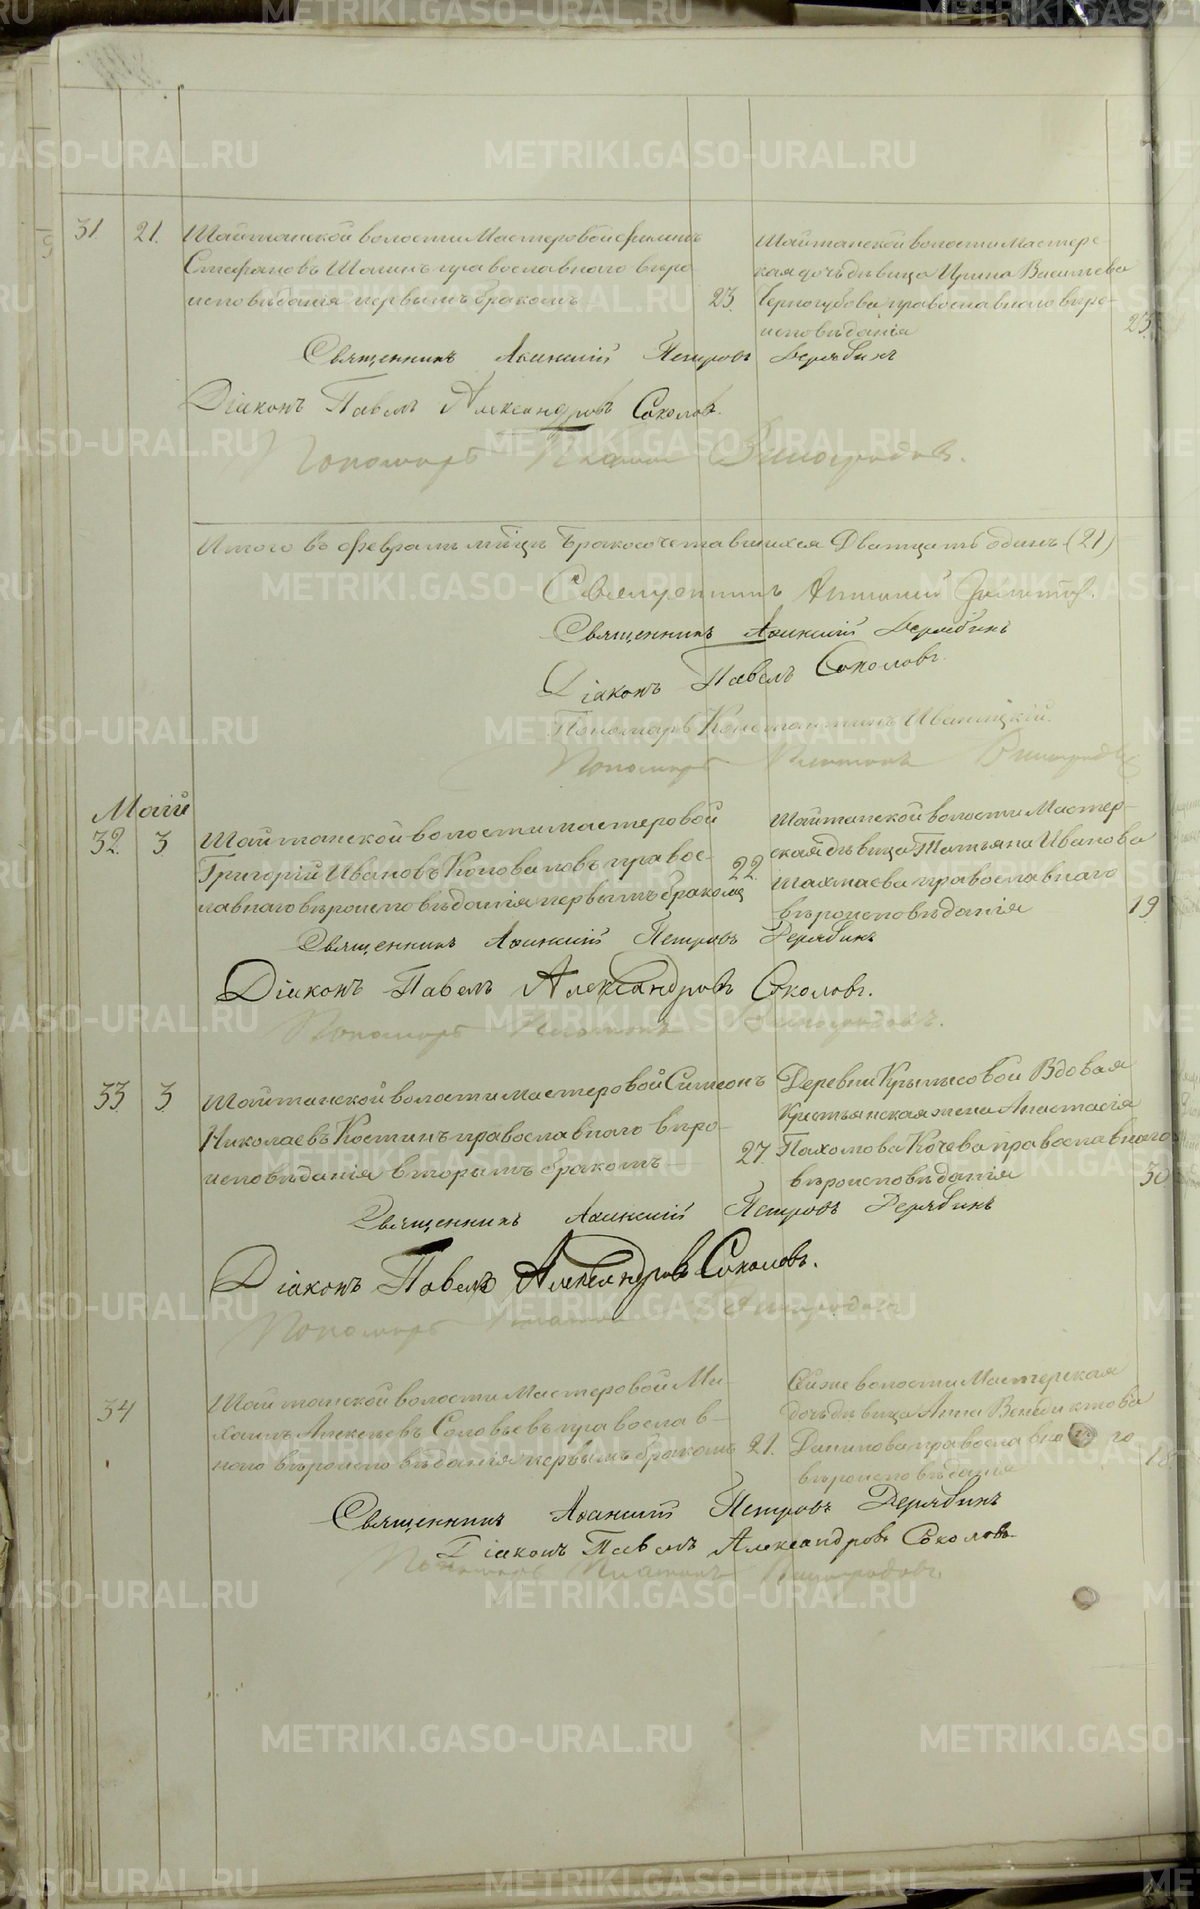 31 21. Шайтанской волости Мастеровой Филипъ
Стефановъ Шашинъ православнаго вѣро
исповѣданія первымъ бракомъ 23.
Шайтанской волости Мастерс-
кая дочь дѣвица Ирина Васильева
Черногубова православнаго вѣро-
исповѣданія 23.
Священникъ Іоанникій Петровъ Дерябинъ
Діаконъ Павелъ Александровъ Соколовъ.
Пономарь Платонъ Виноградовъ.
Итого въ Февралѣ мѣсяцѣ Бракосочетавшихся Дватцать одинъ (21)
Священникъ
Священникъ Іоанникій Дерябинъ
Діаконъ Павелъ Соколовъ.
Пономарь Константинъ Иваницкій.
Пономарь Платонъ Виноградовъ
Маій
32. 3. Шайтанской волости мастеровой
Григорій Ивановъ Коноваловъ правос-
лавнаго вѣроисповѣданія первымъ бракомъ 22.
Шайтанской волости Мастер-
ская дѣвица Татьяна Иванова
Шахмаева православнаго
вѣроисповѣданія 19.
Священникъ Іоанникій Петровъ Дерябинъ
Діаконъ Павелъ Александровъ Соколовъ.
Пономарь Платонъ Виноградовъ.
33. 3. Шайтанской волости мастеровой Симеонъ
Николаевъ Костинъ православнаго вѣро-
исповѣданія вторымъ бракомъ 27.
Деревни Крылосовой Вдовая
Крестьянская жена Анастасія
Пахомова Кочева православнаго
вѣроисповѣданія 30
Священникъ Іоанникій Петровъ Дерябинъ
Діаконъ Павелъ Александровъ Соколовъ.
Пономарь Платонъ Виноградовъ
34 Шайтанской волости Мастеровой Ми-
хаилъ Алексѣевъ Соловьевъ православ-
наго вѣроисповѣданія первымъ бракомъ 21.
Сей же волости Мастерская
дочь дѣвица Анна Венедиктова
Данилова православнаго
вѣроисповѣданія 18
Священникъ Іоанникій Петровъ Дерябинъ
Діаконъ Павелъ Александровъ Соколовъ.
Пономарь Платонъ Виноградовъ.
METRIKI.GASO-URAL.RU